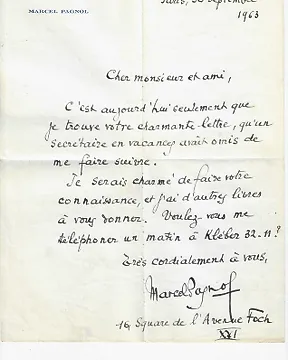 MARCEL PAGNOL
Paris, 30 septembre
1963
Cher monsieur et ami,
C'est aujourd'hui seulement que
je trouve votre charmante lettre, qu'un
secrétaire en vacances avait omis de
me faire suivre.
Je serais charmé de faire votre
connaissance, et j'ai d'autres livres
à vous donner. Voulez-vous me
téléphoner un matin à Kléber 32-11?
Très cordialement à vous,
Marcel Pagnol
16, Square de l'Avenue Foch
XVI